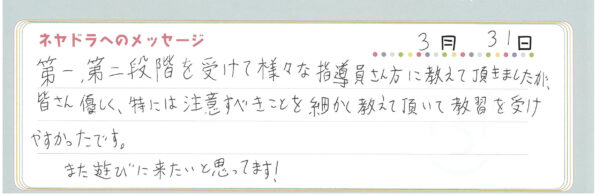 ネヤドラへのメッセージ
3月 31日
第一,第二段階を受けて様々な指導員さん方に教えて頂きましたが、
皆さん優しく、特には注意すべきことを細かく教えて頂いて教習を受け
やすかったです。
また遊びに来たいと思ってます!